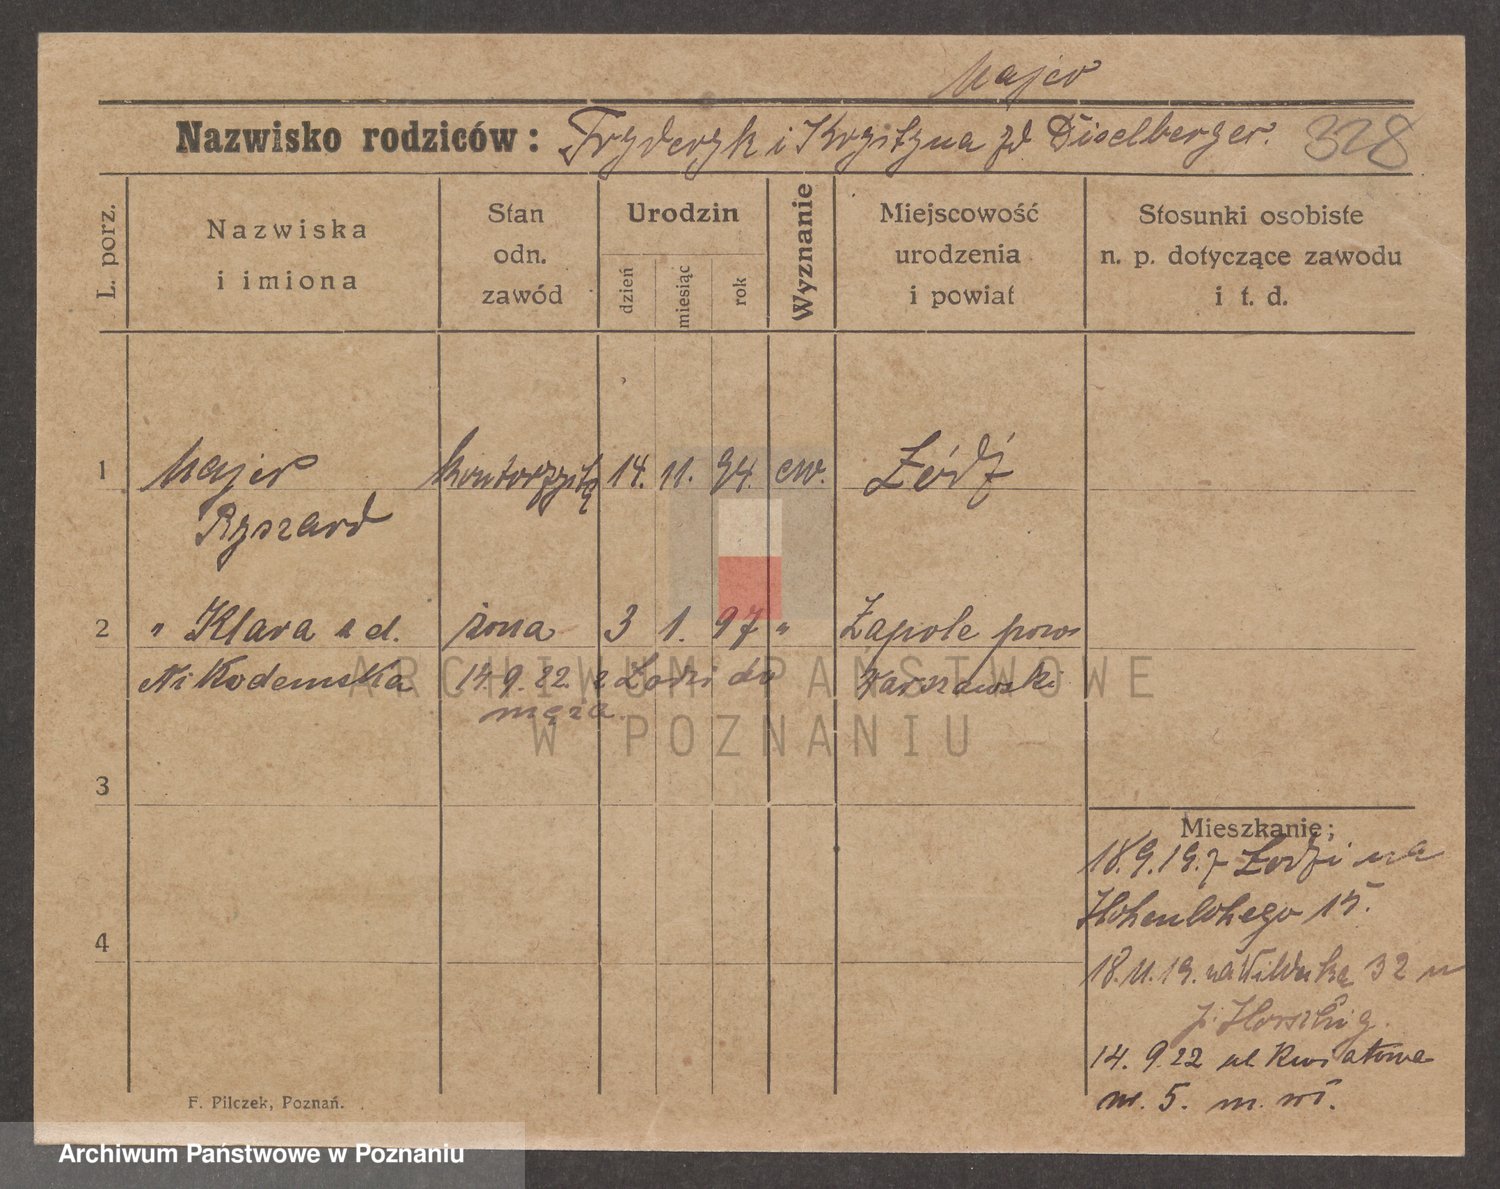 Majer
Nazwisko rodziców: Fryderyk i Krystyna zd Diselberger. 328
L. porz.
Nazwiska
i imiona
Stan
odn.
zawód
Urodzin
dzień
miesiąc
rok
Wyznanie
Miejscowość
urodzenia
i powiat
Stosunki osobiste
n. p. dotyczące zawodu
i t. d.
1 Majer kontorzystą 14. 11. 94. ew. Łódź
Ryszard
2 " Klara z d. żona 3 1. 97 " Zapole pow
Nikodemska 14.9.22. z Łodzi do Warszawski
męża.
ARCHIWUM PAŃSTWOWE
W POZNANIU
3
Mieszkanie;
18.9.19. z Łodzi na
Hohenlohego 15.
4
18.11.19. na 32 u
J.
14. 9.22 ul Kwiatowa
nr. 5. m.
F. Pilczek, Poznań.
Archiwum Państwowe w Poznaniu